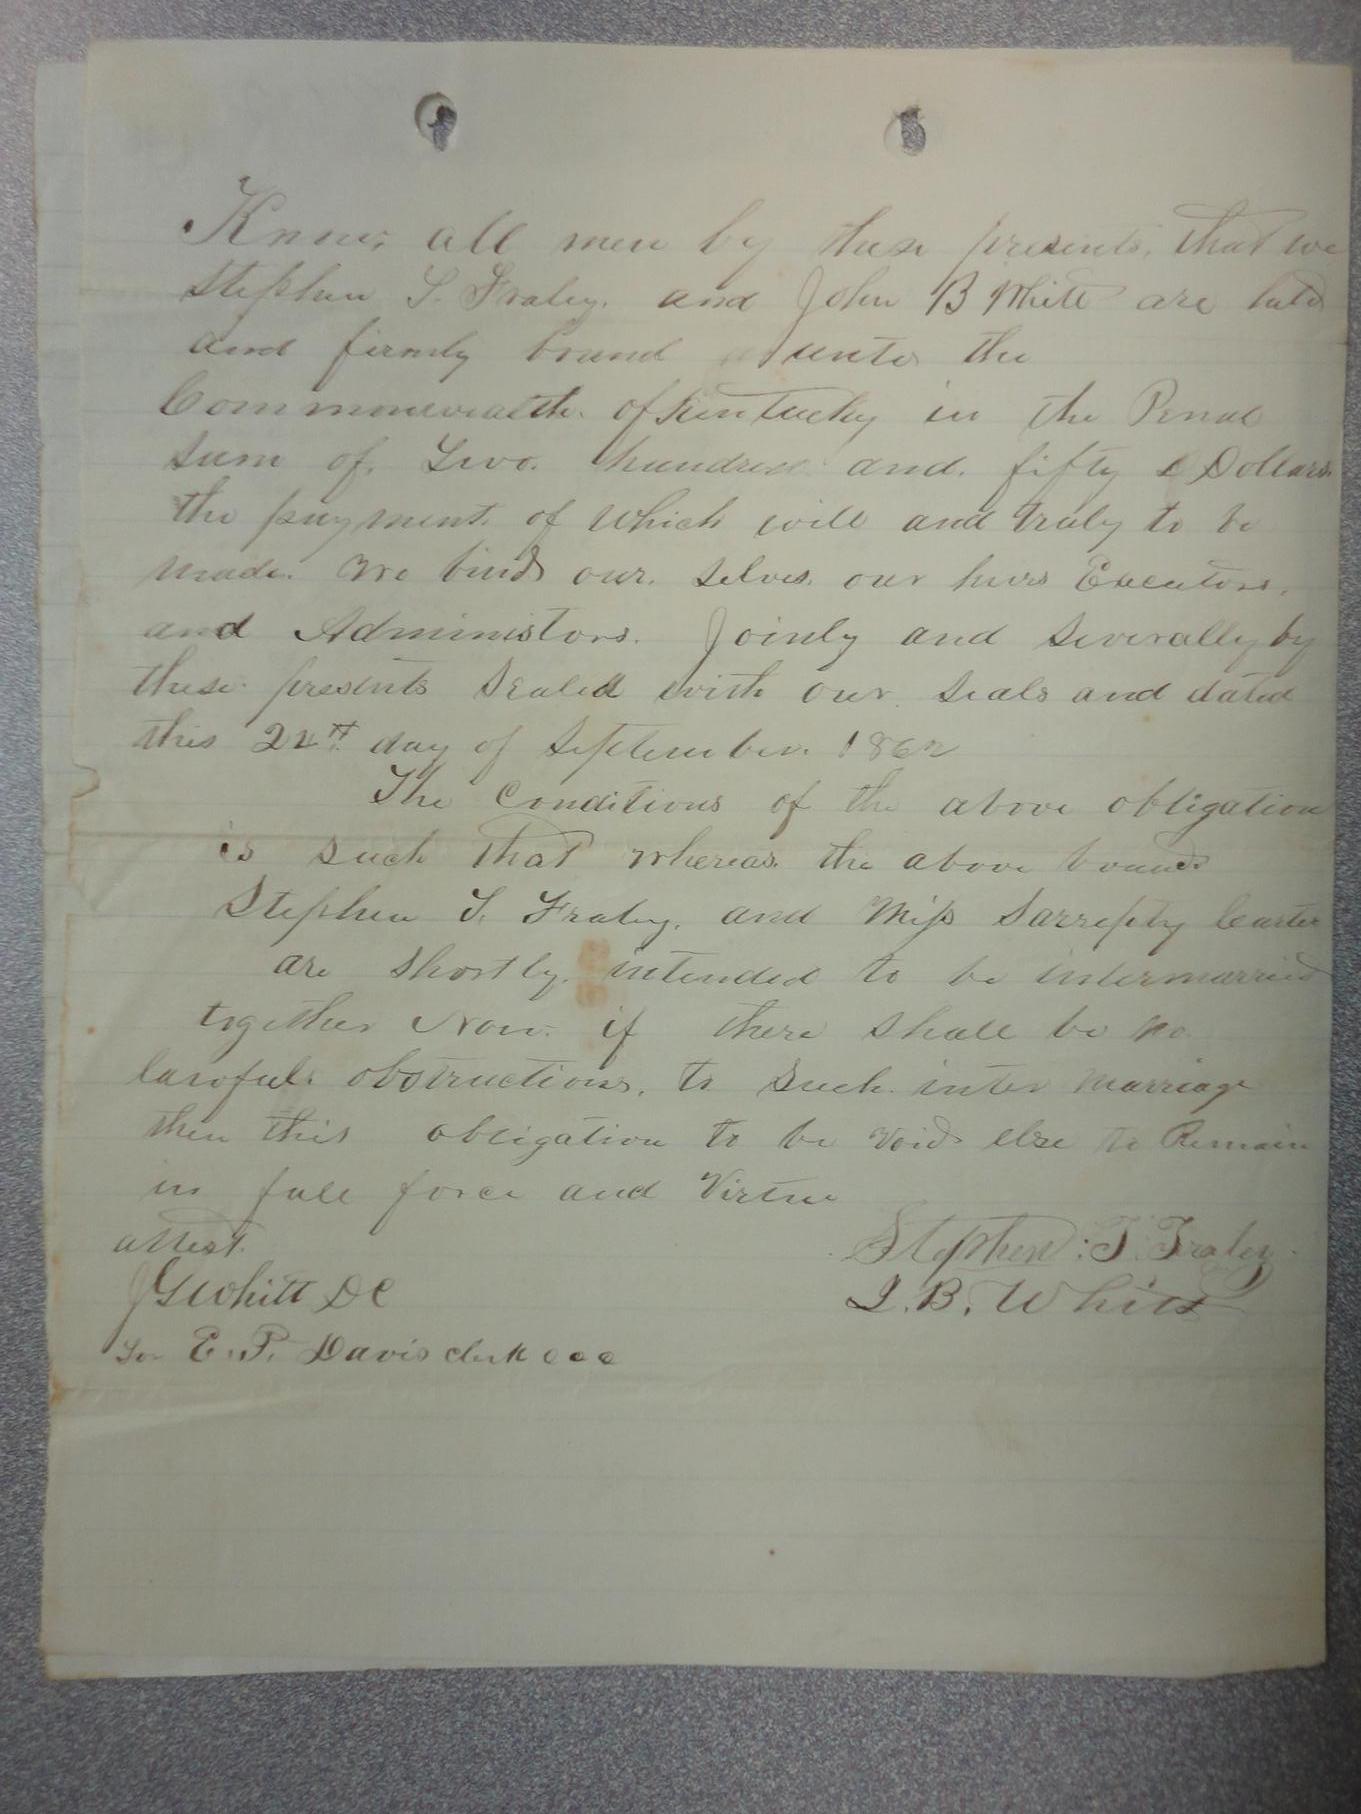 Know all men by these presents, that we
Stephen T. Fraley. and John B White are held
and firmly bound unto the
Commonwealth. of Kentucky in the Penal
Sum of. Two. hundred and. fifty Dollars.
the payment. of which will and truly to be
made. We bind our. selves. our heirs Executors.
and Administors. Jointly and severally by
these. presents sealed with our. seals and dated
this day of September. 1862
The Conditions of the above obligation
is such that whereas. the above bound
Stephen T. Fraley. and Miss Sarrepty Carter
are shortly. intended to be intermarried
together Now. if there shall be no.
lawfull obstructions. to such. inter marriage
then this obligation to be void else to Remain
in full force and Virtue
attest.
Stephen : T. Fraley
JGWhitt DC
J. B. Whitt
for E. P. Davis clerk c c c